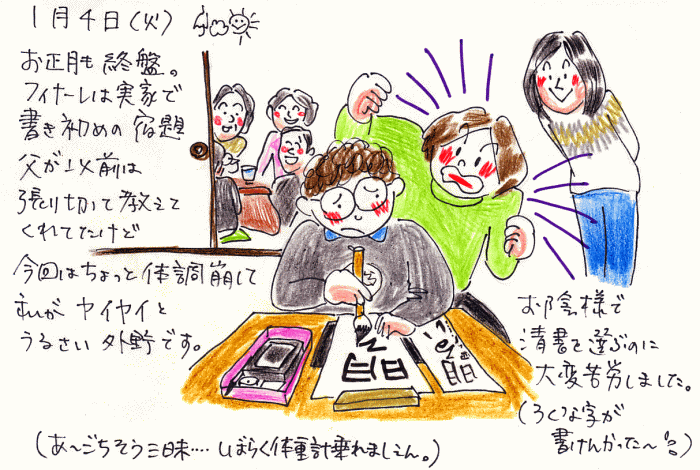 1月4日(火)
お正月も終盤。
フィナーレは実家で
書き初めの宿題
父が以前は
張り切って教えて
くれてたけど
今回はちょっと体調崩して
私がヤイヤイと
うるさい外野です。
お陰様で
清書を選ぶのに
大変苦労しました。
(ろくな字が
書けんかった〜
(あ〜ごちそう三昧‥‥しばらく体重計乗れましぇん。)